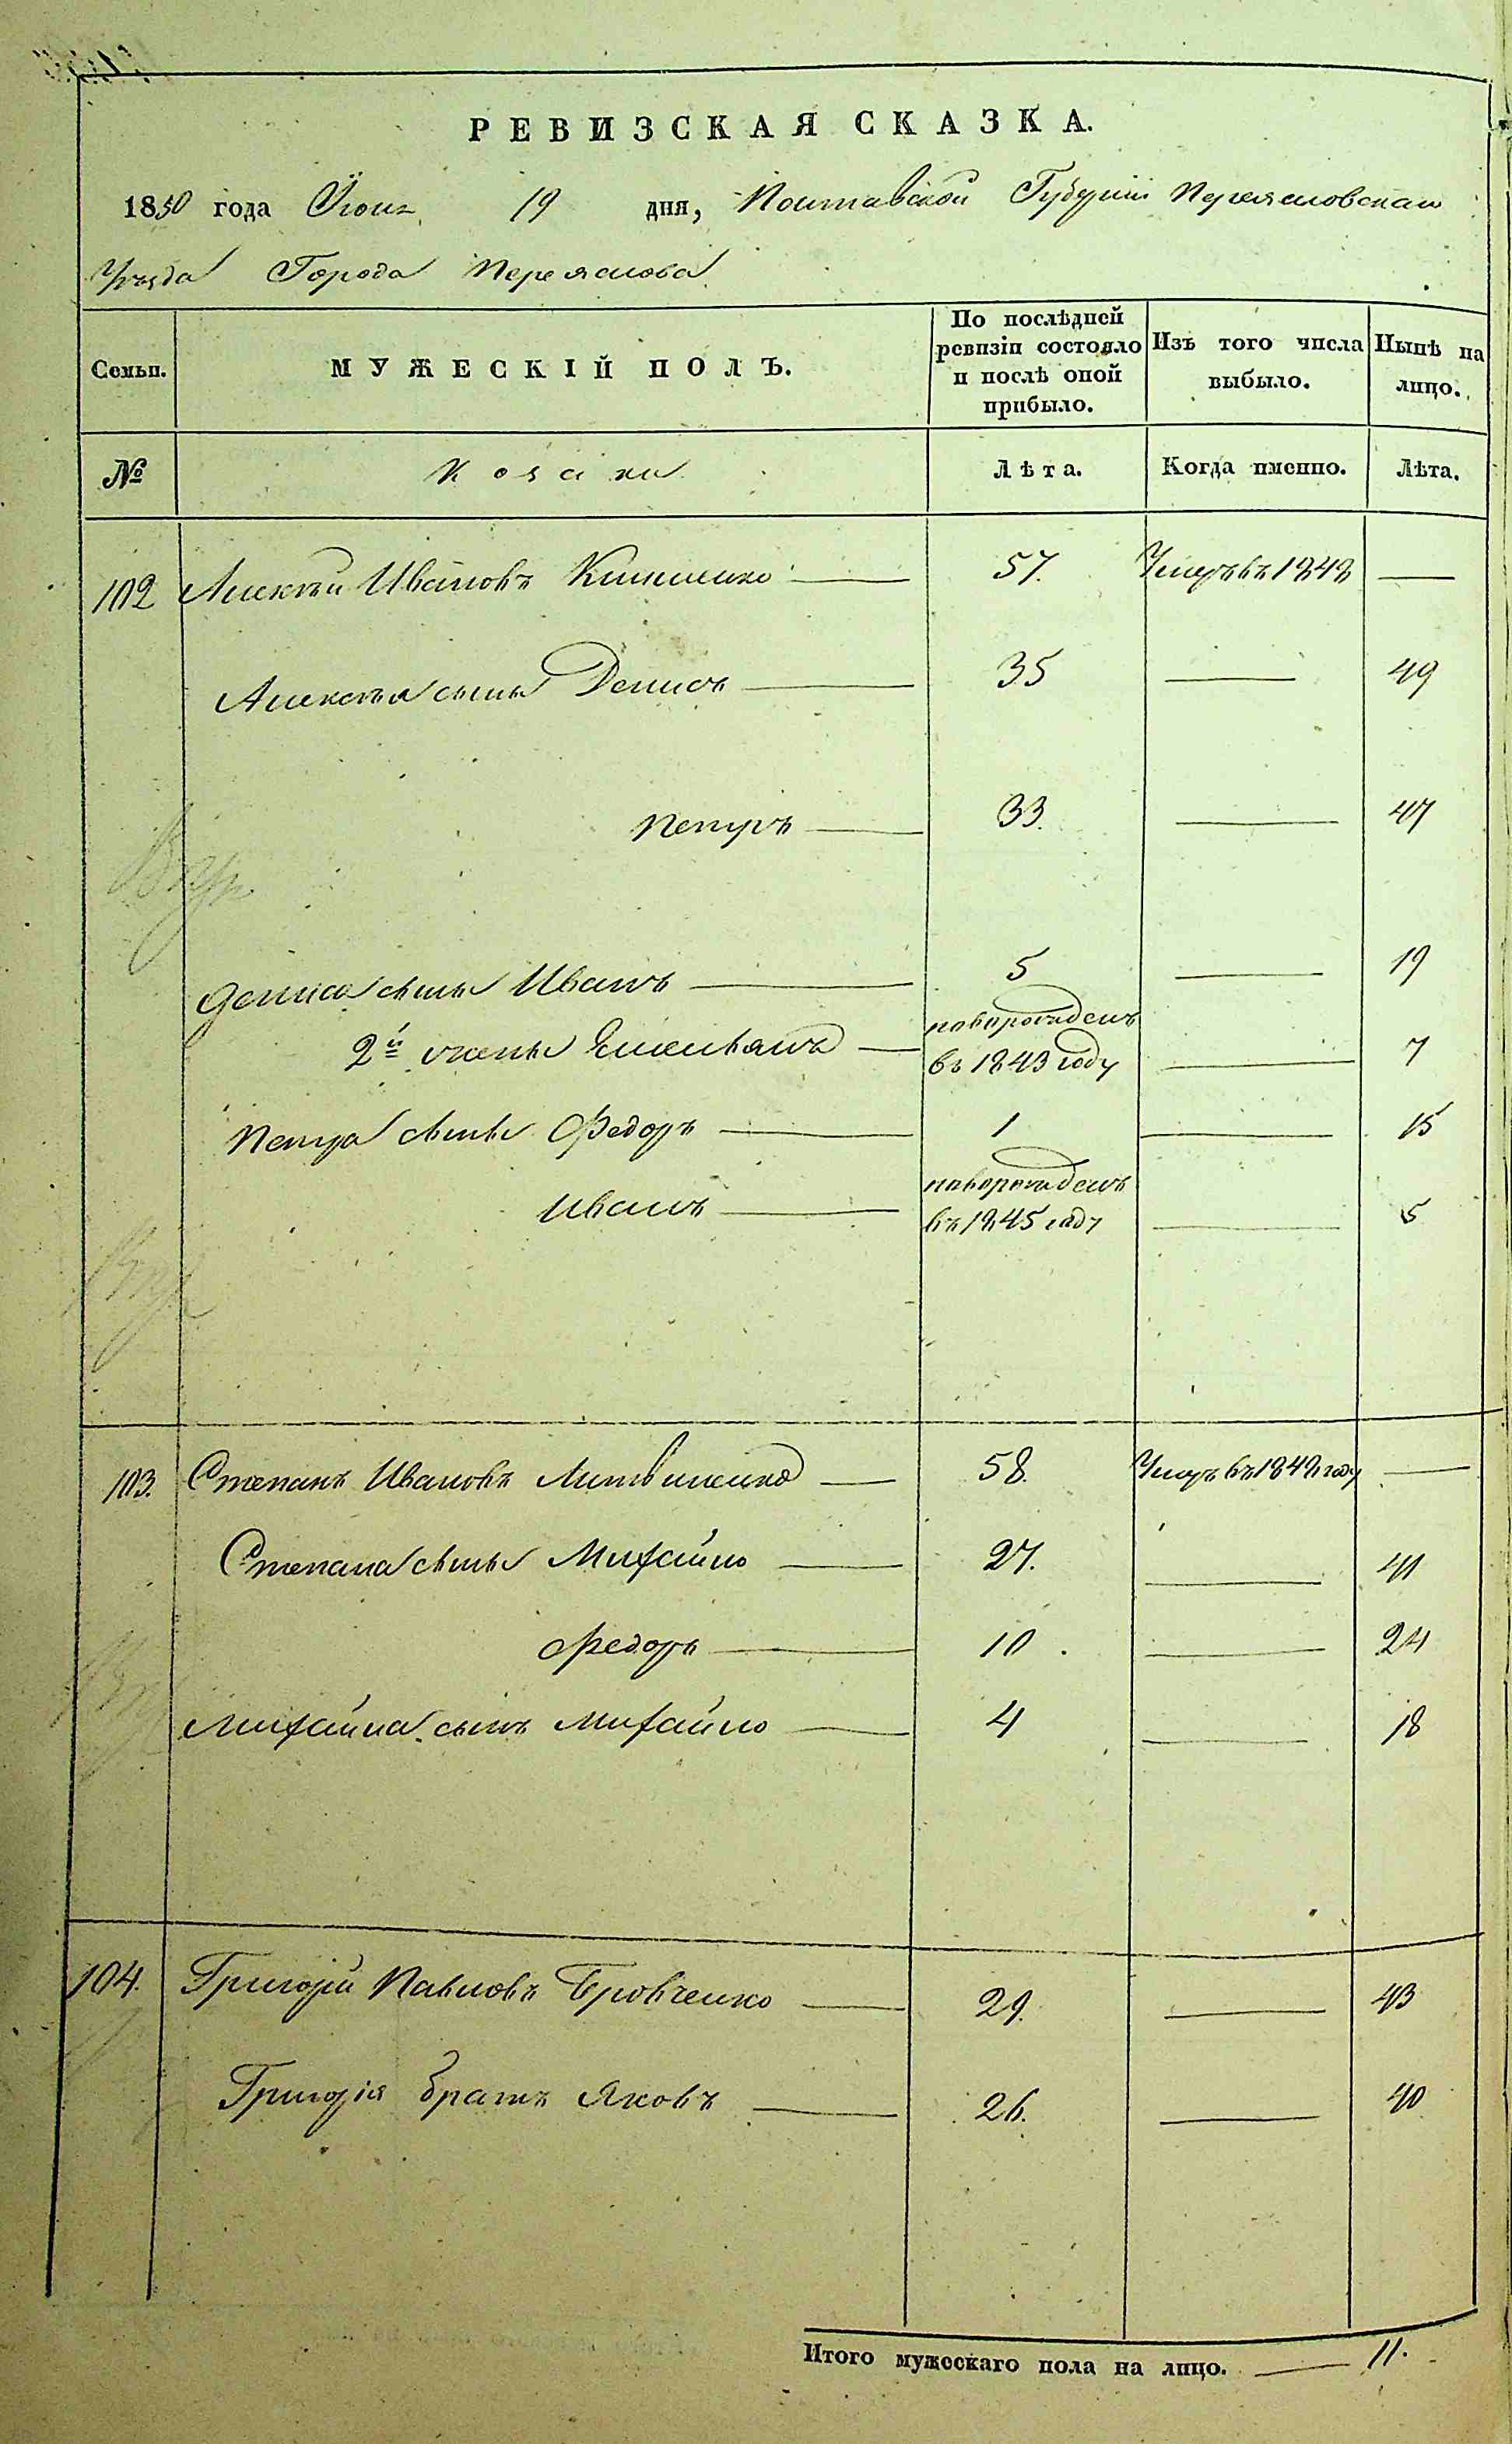 РЕВИЗСКАЯ СКАЗКА.
1850 года Июня 19 дня, Полтавской Губерніи Переяславскаго
Уѣзда Города Переяслова
Семьи. МУЖЕСКІЙ ПОЛЪ. По послѣдней ревизіи состояло и послѣ оной прибыло. Изъ того числа выбыло. Нынѣ на лицо.
№ Козаки Лѣта. Когда именно. Лѣта.
102 Алексѣй Ивановъ 57. Умеръ въ 1848 —
Алексѣя сынъ Денисъ — 35 — 49
Петръ — 33. — 47
Дениса сынъ Иванъ — 5 — 19
2й жены Емельянъ — новорожденъ въ 1843 году — 7
Петра сынъ Федоръ — 1 — 15
Иванъ — новорожденъ въ 1845 году — 5
103. Степанъ Ивановъ Литвиненко — 58. Умеръ въ 1848 году —
Степана сынъ Михайло — 27. — 41
Федоръ — 10. — 24
Михайла сынъ Михайло — 4 — 18
104. Григорій Павловъ Бровченко — 29. — 43
Григорія братъ Яковъ — 26. — 40
Итого мужескаго пола на лицо. — 11.